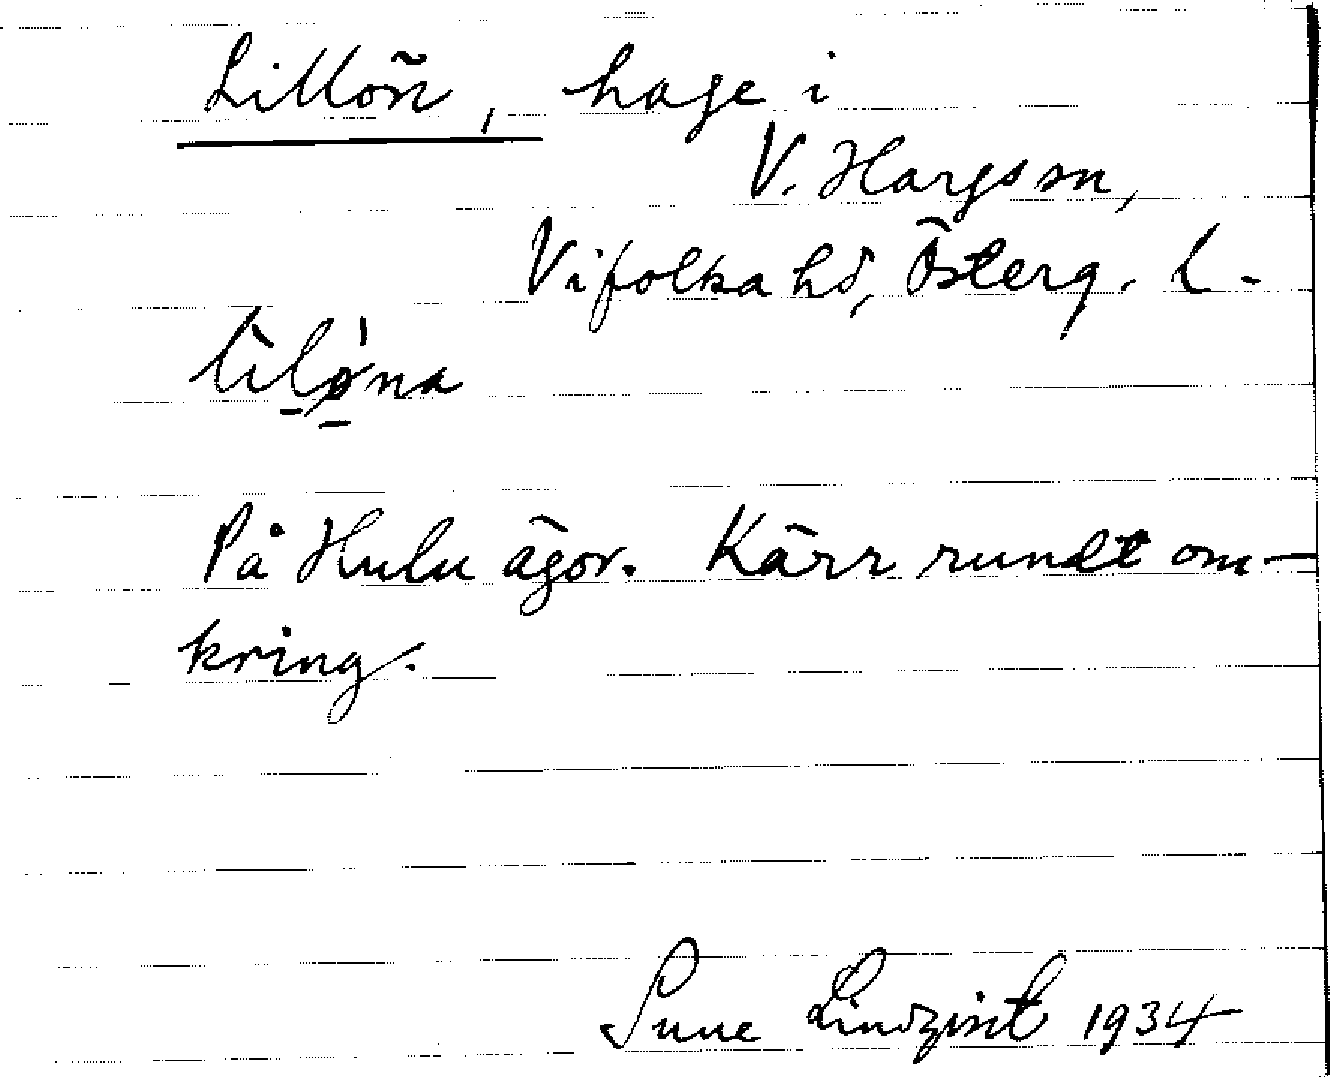 Lillön, hage i
V. Hargs sn,
Vifolka hd, Österg. l.
På Hulu ägor. Kärr rundt om-
kring.
Sune Lindqvist 1934